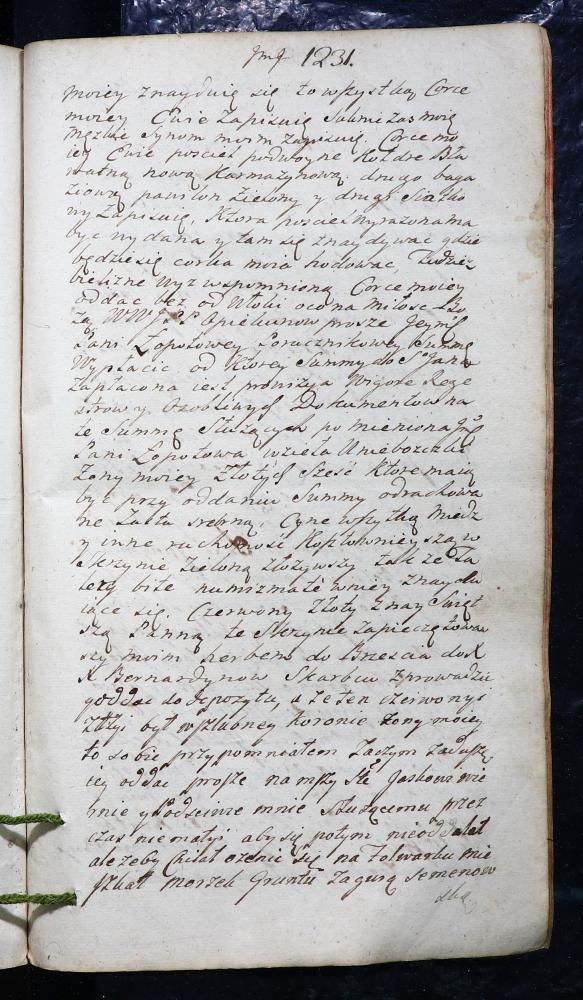 1231.
moiey znayduią się to wszystką Corce
moiey Ewie zapisuię Summę zas moię
Męzkie Synom moim zapisuię. Corce mo
iey Ewie posciel podwoyne Kołdre Bła
watną nową Karmazynową drugą baga
ziową pawilon Zielony y drugi Siatko
wy Zapisuię, Ktora posciel wyrazona ma
być wydana y tam się znaydywać gdzie
będzie się corka moia hodować,
bielizne wyz wspomnioną Corce moiey
oddać bez od włoki oco na Miłosc Bo
zą WWJPP Opiekunow prosze Jeymć
Pani Łopotowey Porucznikowey Summę
Wypłacic od Ktorey Summy do S Jana
Zapłacona iest prowizya Vigore Reie
strow y Osobliwych Dokumentow na
te Summę Służących pomieniona Jmć
Pani Łopotowa wzieła u nieboszczki
Zony moiey Złotych Szesc Ktore maią
być przy oddaniu Summy odrachowa
ne Zasta srebrną, Cynę wszytką Miedz
y inne ruchomosc Kosztowniey szą w
Skrzynie Zieloną złozywszy takze Ta
lery bite numizmate w niey znaydu
iące się Czerwony Złoty z nay Swięt
szą Panną te Skrzynie Zapieczętowa
szy moim herbem do Brzescia do
X Bernardynow Skarbcu zprowadzic
y oddac do depozytu, a ze ten czerwony
Złty był w szlubney koronie zony moiey
to sobie przypomniałem Zaczym Za duszę
iey oddać prosze na mszy Ste Jaskowi wie
rnie y Podsciwie mnie Służącemu przez
czas niemały aby się potym nieoddalał
ale zeby chciał ozenic się na Folwarku mie
szkał morzch Gruntu Za gurą Semenow